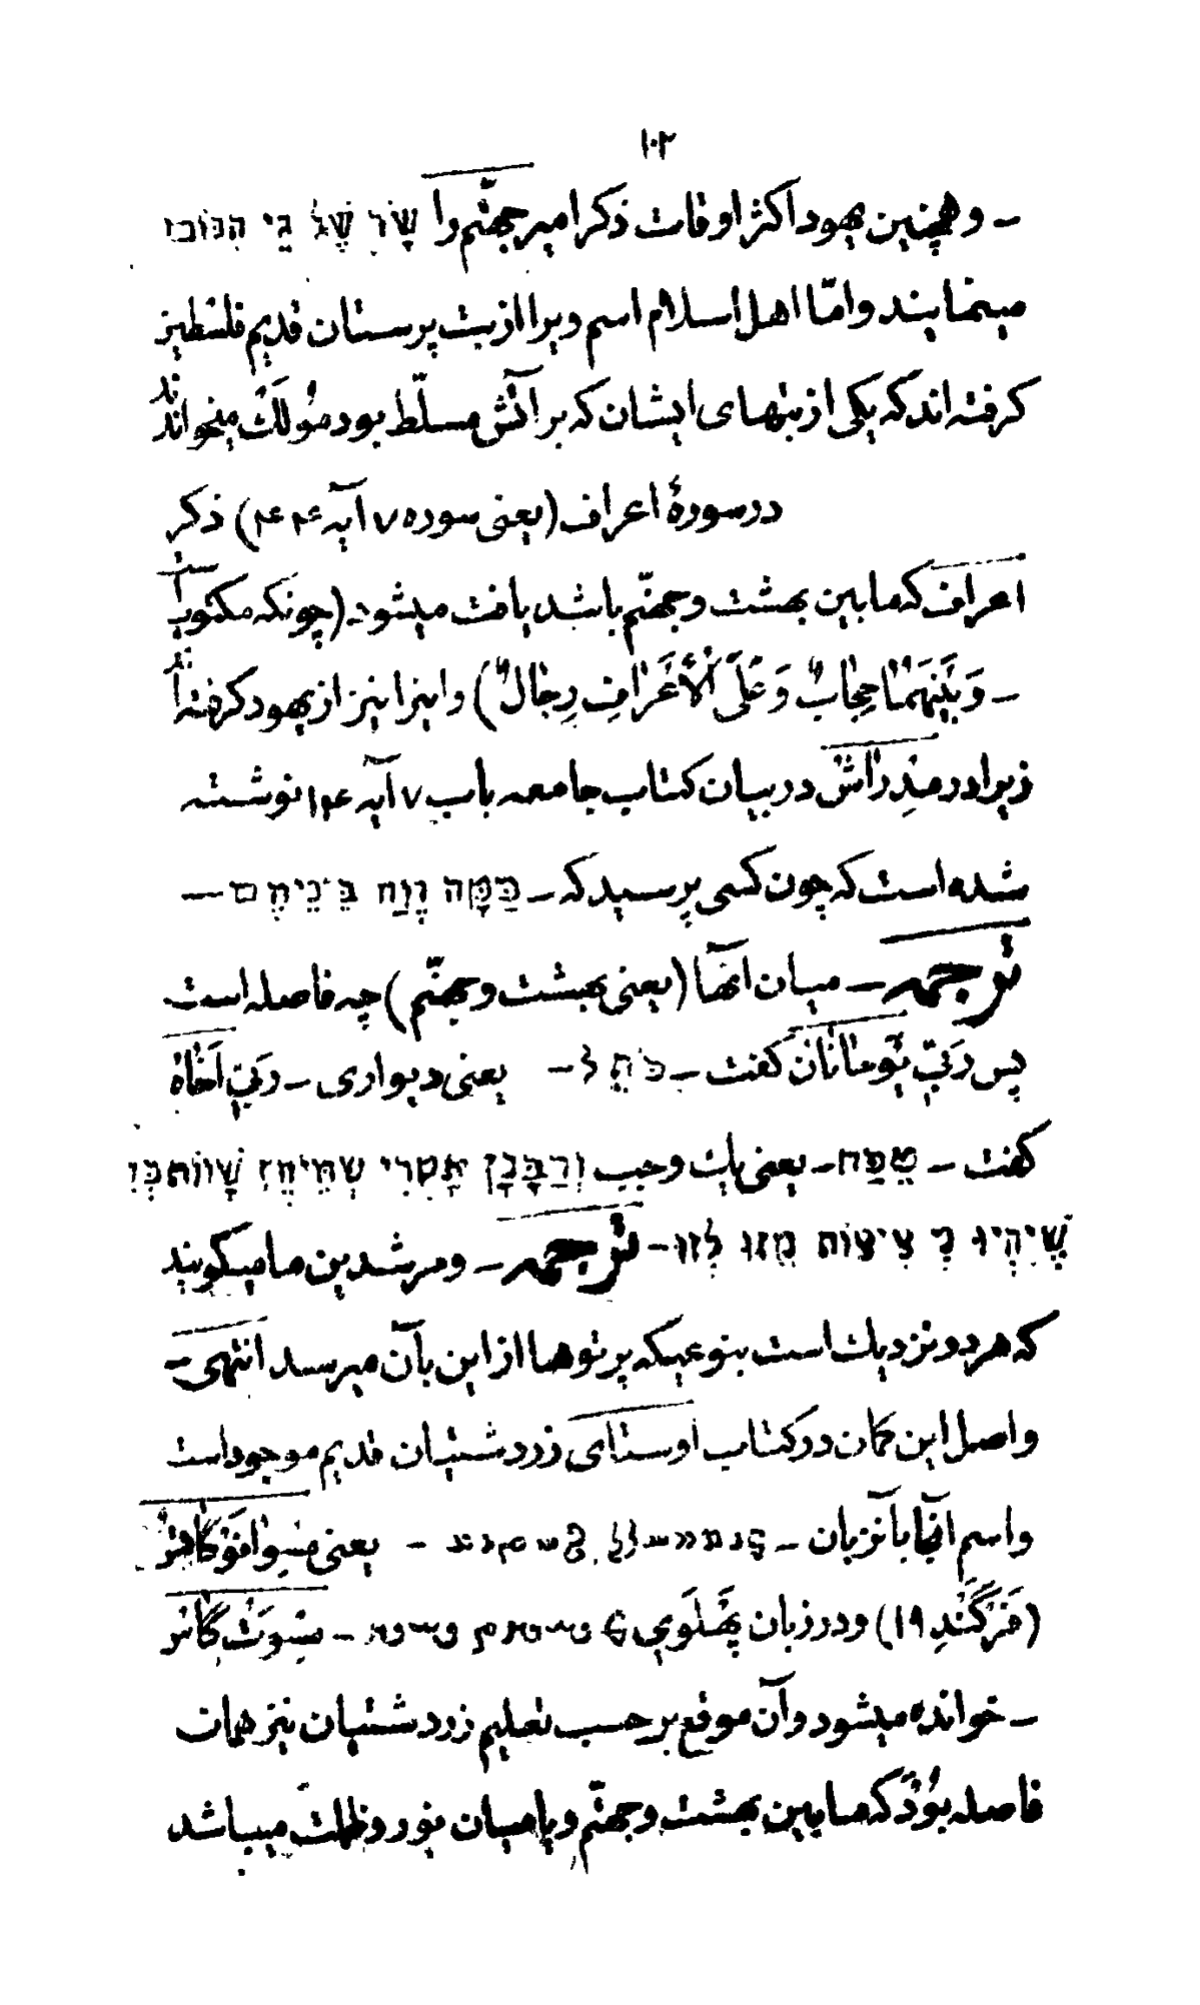 ۱۰۲
ـ و همچنین یهود اکثر اوقات ذکر امیر جهنّم را שָׂר שֶׁל גֵּי הִנּוֹם
مینمایند و امّا اهل اسلام اسم ویرا از بت پرستان قدیم فلسطین
کرفته‌اند که یکی از بتهای ایشان که بر آتش مسلّط بود مُولَک میخواندند
در سورهٔ اعراف (یعنی سوره ۷ آیه ۴۴) ذکر
اعراف که مابین بهشت و جهنّم باشد یافت میشود (چونکه مکتوب است
ـ وَبَیْنَهُمَا حِجَابٌ وَ عَلَی الْأَعْرَافِ رِجَالٌ) و اینرا نیز از یهود کرفته‌اند
زیرا در مِدراش در بیان کتاب جامعه باب ۷ آیه ۱۴ نوشته
شده است که چون کسی پرسید که ـ כַּמָּה רֶוַח בֵּינֵיהֶם ـ
ترجمه ـ میان آنها (یعنی بهشت و جهنّم) چه فاصله است
پس رَبّی یُوحانان کفت ـ כֹּתֶל ـ یعنی دیواری ـ رَبّی اَخاه
کفت ـ טֶפַח ـ یعنی یك وجب וְרַבָּנָן אָמְרִי שְׁתֵּיהֶן שָׁווֹת כְּדֵי
שֶׁיִּהְיוּ מְצִיצוֹת מִזּוּ לְזוּ ـ ترجمه ـ و مرشدین ما میکویند
که هر دو نزدیك است بنوعیکه پرتوها از این بآن میرسد انتهی ـ
و اصل این کمان در کتاب اوستای زردشتیان قدیم موجود است
و اسم آنجا بآنزبان ـ ـ یعنی
(فَرْکَنْدِ ۱۹) و در زبان پَهْلَوِی ـ
ـ خوانده میشود و آن موقع بر حسب تعلیم زردشتیان نیز همان
فاصله بُوَد که مابین بهشت و جهنّم و یا میان نور و ظلمت میباشد